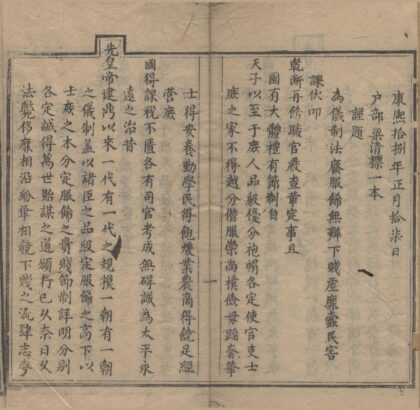 康熙拾捌年正月拾柒日
户部梁清標一本
謹題
為儀制法廢服飾無辨下賤虛靡蠹民害
課伏叩
乾斷再飭職官嚴查章定事且
國有大體禮有節制自
天子以至于庶人品級優分袍帽各定使官吏士
庶之家不得越分僭服崇尚樸儉毋蹈奢華
士得安養勤學民得飽煖業農商得饒足經
營庶
國得課稅不匱各有司官考成無碍誠為太平永
遠之治昔
先皇帝建鼎以來一代有一代之規模一朝有一朝
之儀制蓋以諸臣之品級定服飾之高下以
士庶之本分定服飾之貴賤節制詳明分別
各定誠得萬世貽謀之道頒行已久奈日久
法斃侈靡相沿紛華相競下賤之流肆志夸